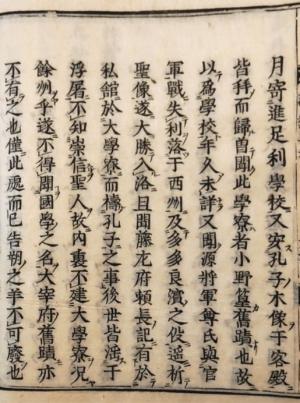 月寄進足利學校又安孔子木像于客殿
皆拜而歸曽聞此學寮者小野篁舊蹟也故
以爲學校年久未詳又聞源將軍尊氏與官
軍戰失利落于西州及多多良濵之役遥祈
聖像遂大勝入洛且聞藤左府頼長記有於
私館於大學寮而禱孔子之事後世皆淫于
浮屠不知崇信聖人故内裏不建大學寮况
餘州乎遂不得聞國學之名大宰府舊蹟亦
不有之也僅此處而已告朔之羊不可廢也